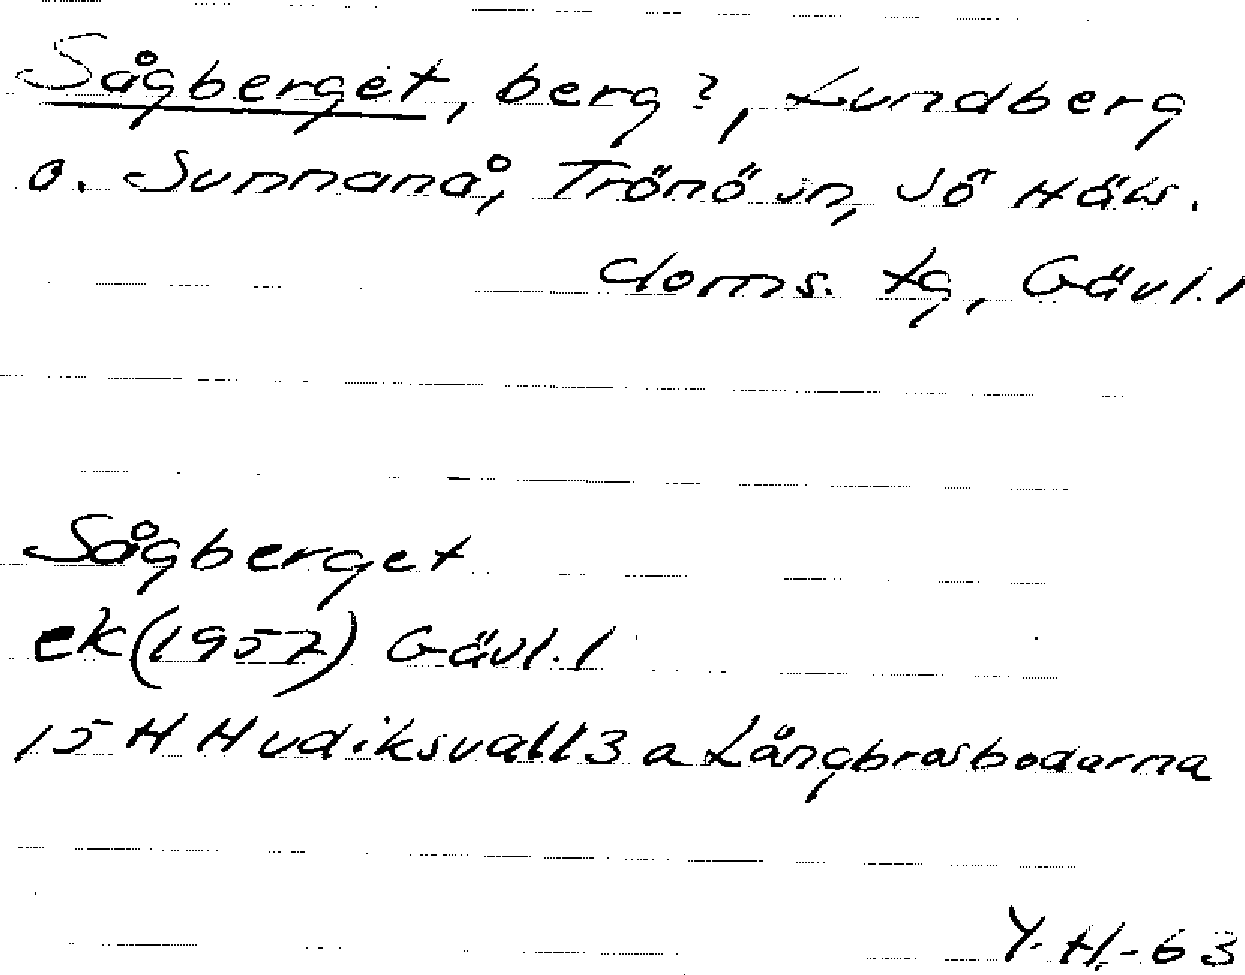 Sågberget, berg?, Lundberg
o. Sunnanå, Trönö sn, Sö Häls.
doms. tg, Gävl. l
Sågberget
ek (1957) Gävl. l
15 H Hudiksvall 3 a Långbrosbodarna
Y. H. -63